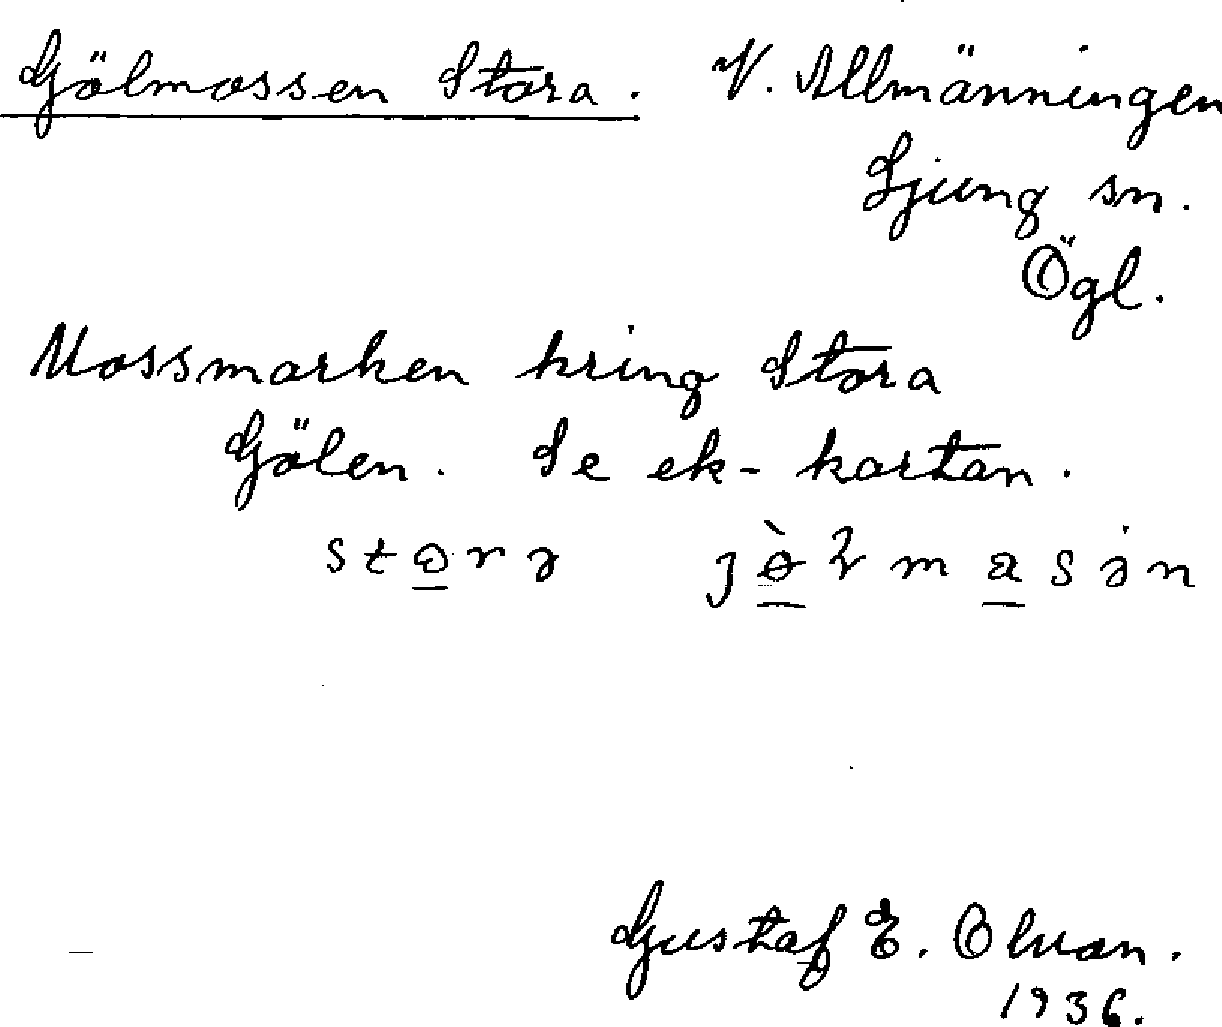 Gölmossen Stora. V. Allmänningen
Ljung sn.
Ögl.
Mossmarken kring Stora
Gölen. Se ek-kartan.
Gustaf E. Olvan.
1936.